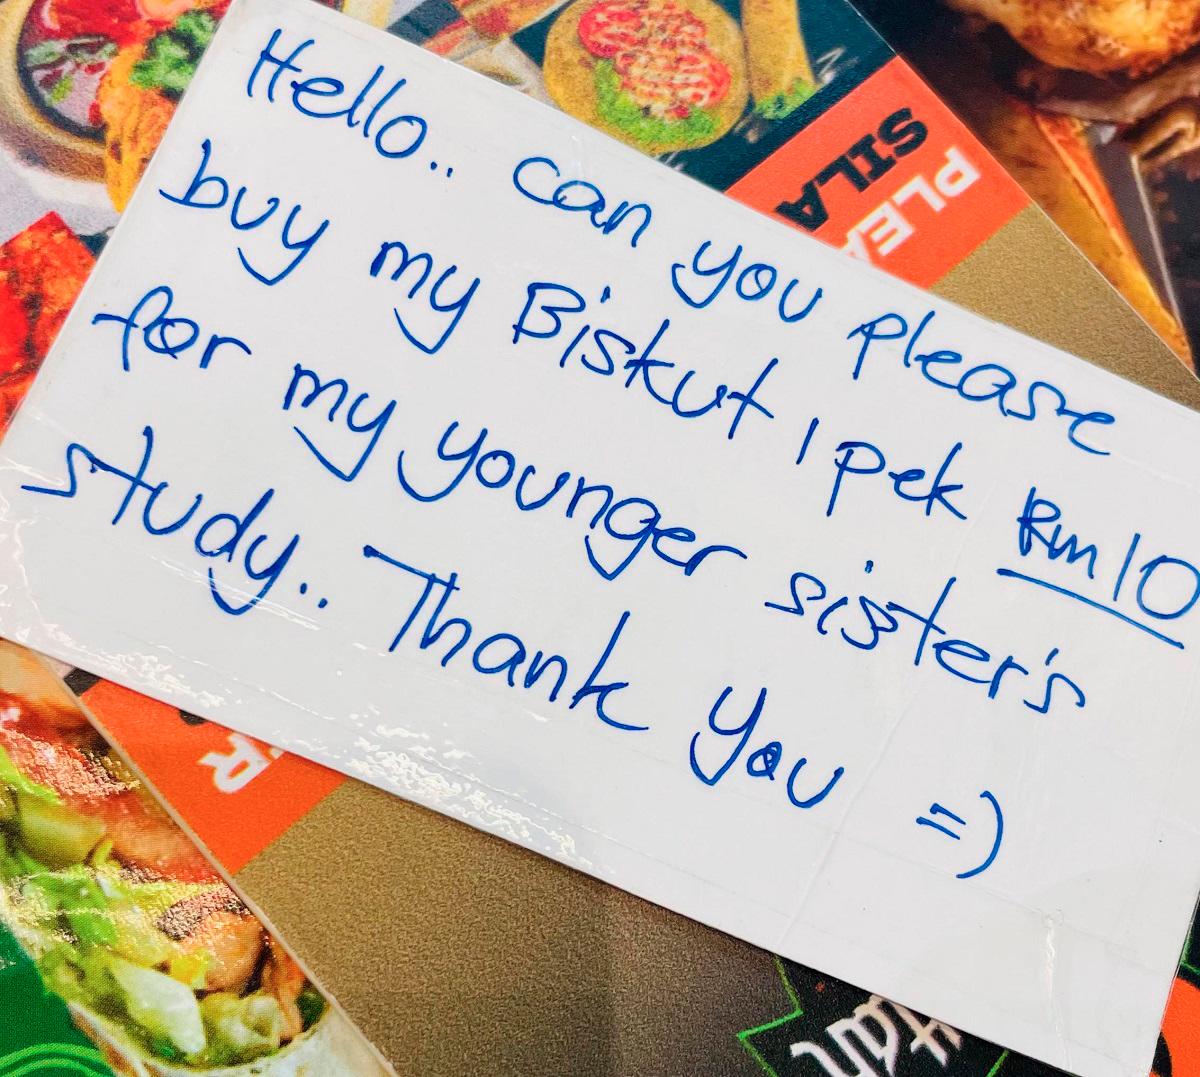 Hello.. can you please
buy my Biskut 1 pek Rm10
for my younger sister's
study.. Thank you =)
PLEA
SILA
R